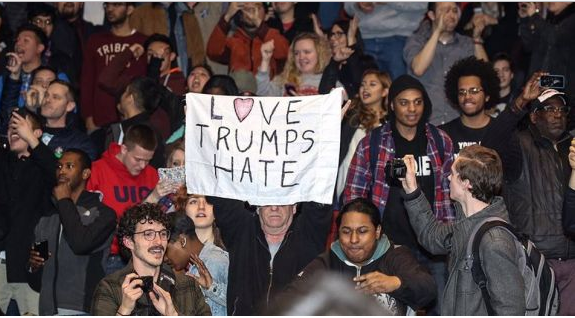 L♡VE
TRUMPS
HATE
TRIBE
UIC